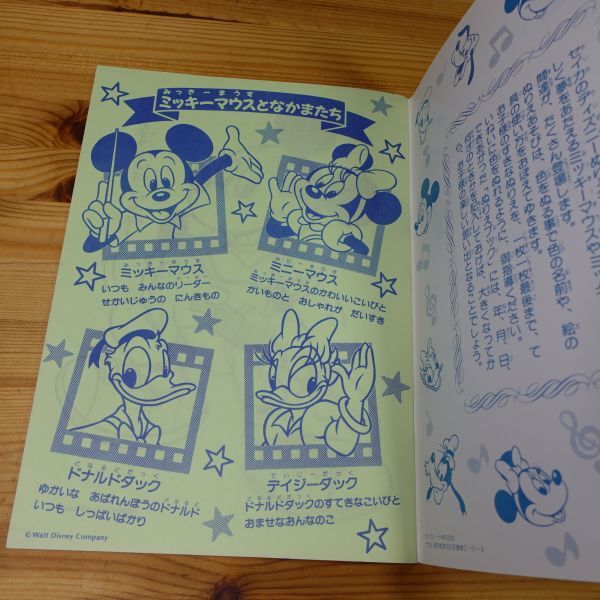 みっきーまうす
ミッキーマウスとなかまたち
みっきーまうす
ミッキーマウス
いつも みんなのリーダー
せかいじゅうの にんきもの
みにーまうす
ミニーマウス
みっきーまうす
ミッキーマウスのかわいいこいびと
かいものと おしゃれが だいすき
どなるどだっく
ドナルドダック
どなるど
ゆかいな あばれんぼうのドナルド
いつも しっぱいばかり
でいじーだっく
デイジーダック
どなるどだっく
ドナルドダックのすてきなこいびと
おませなおんなのこ
© Walt Disney Company
セイカのディズニーぬりえ
しく夢をあたえるミッキーマウスや
間達が、たくさん登場します。
ぬりえあそびは、色をぬる事で色の名前や、絵の
具の使い方をおぼえてゆきます。
お子様のすきなぬりえを、一枚一枚最後まで、て
いねいに色をぬるように、御指導ください。
できあがった「ぬりえブック」には、年、月、日、